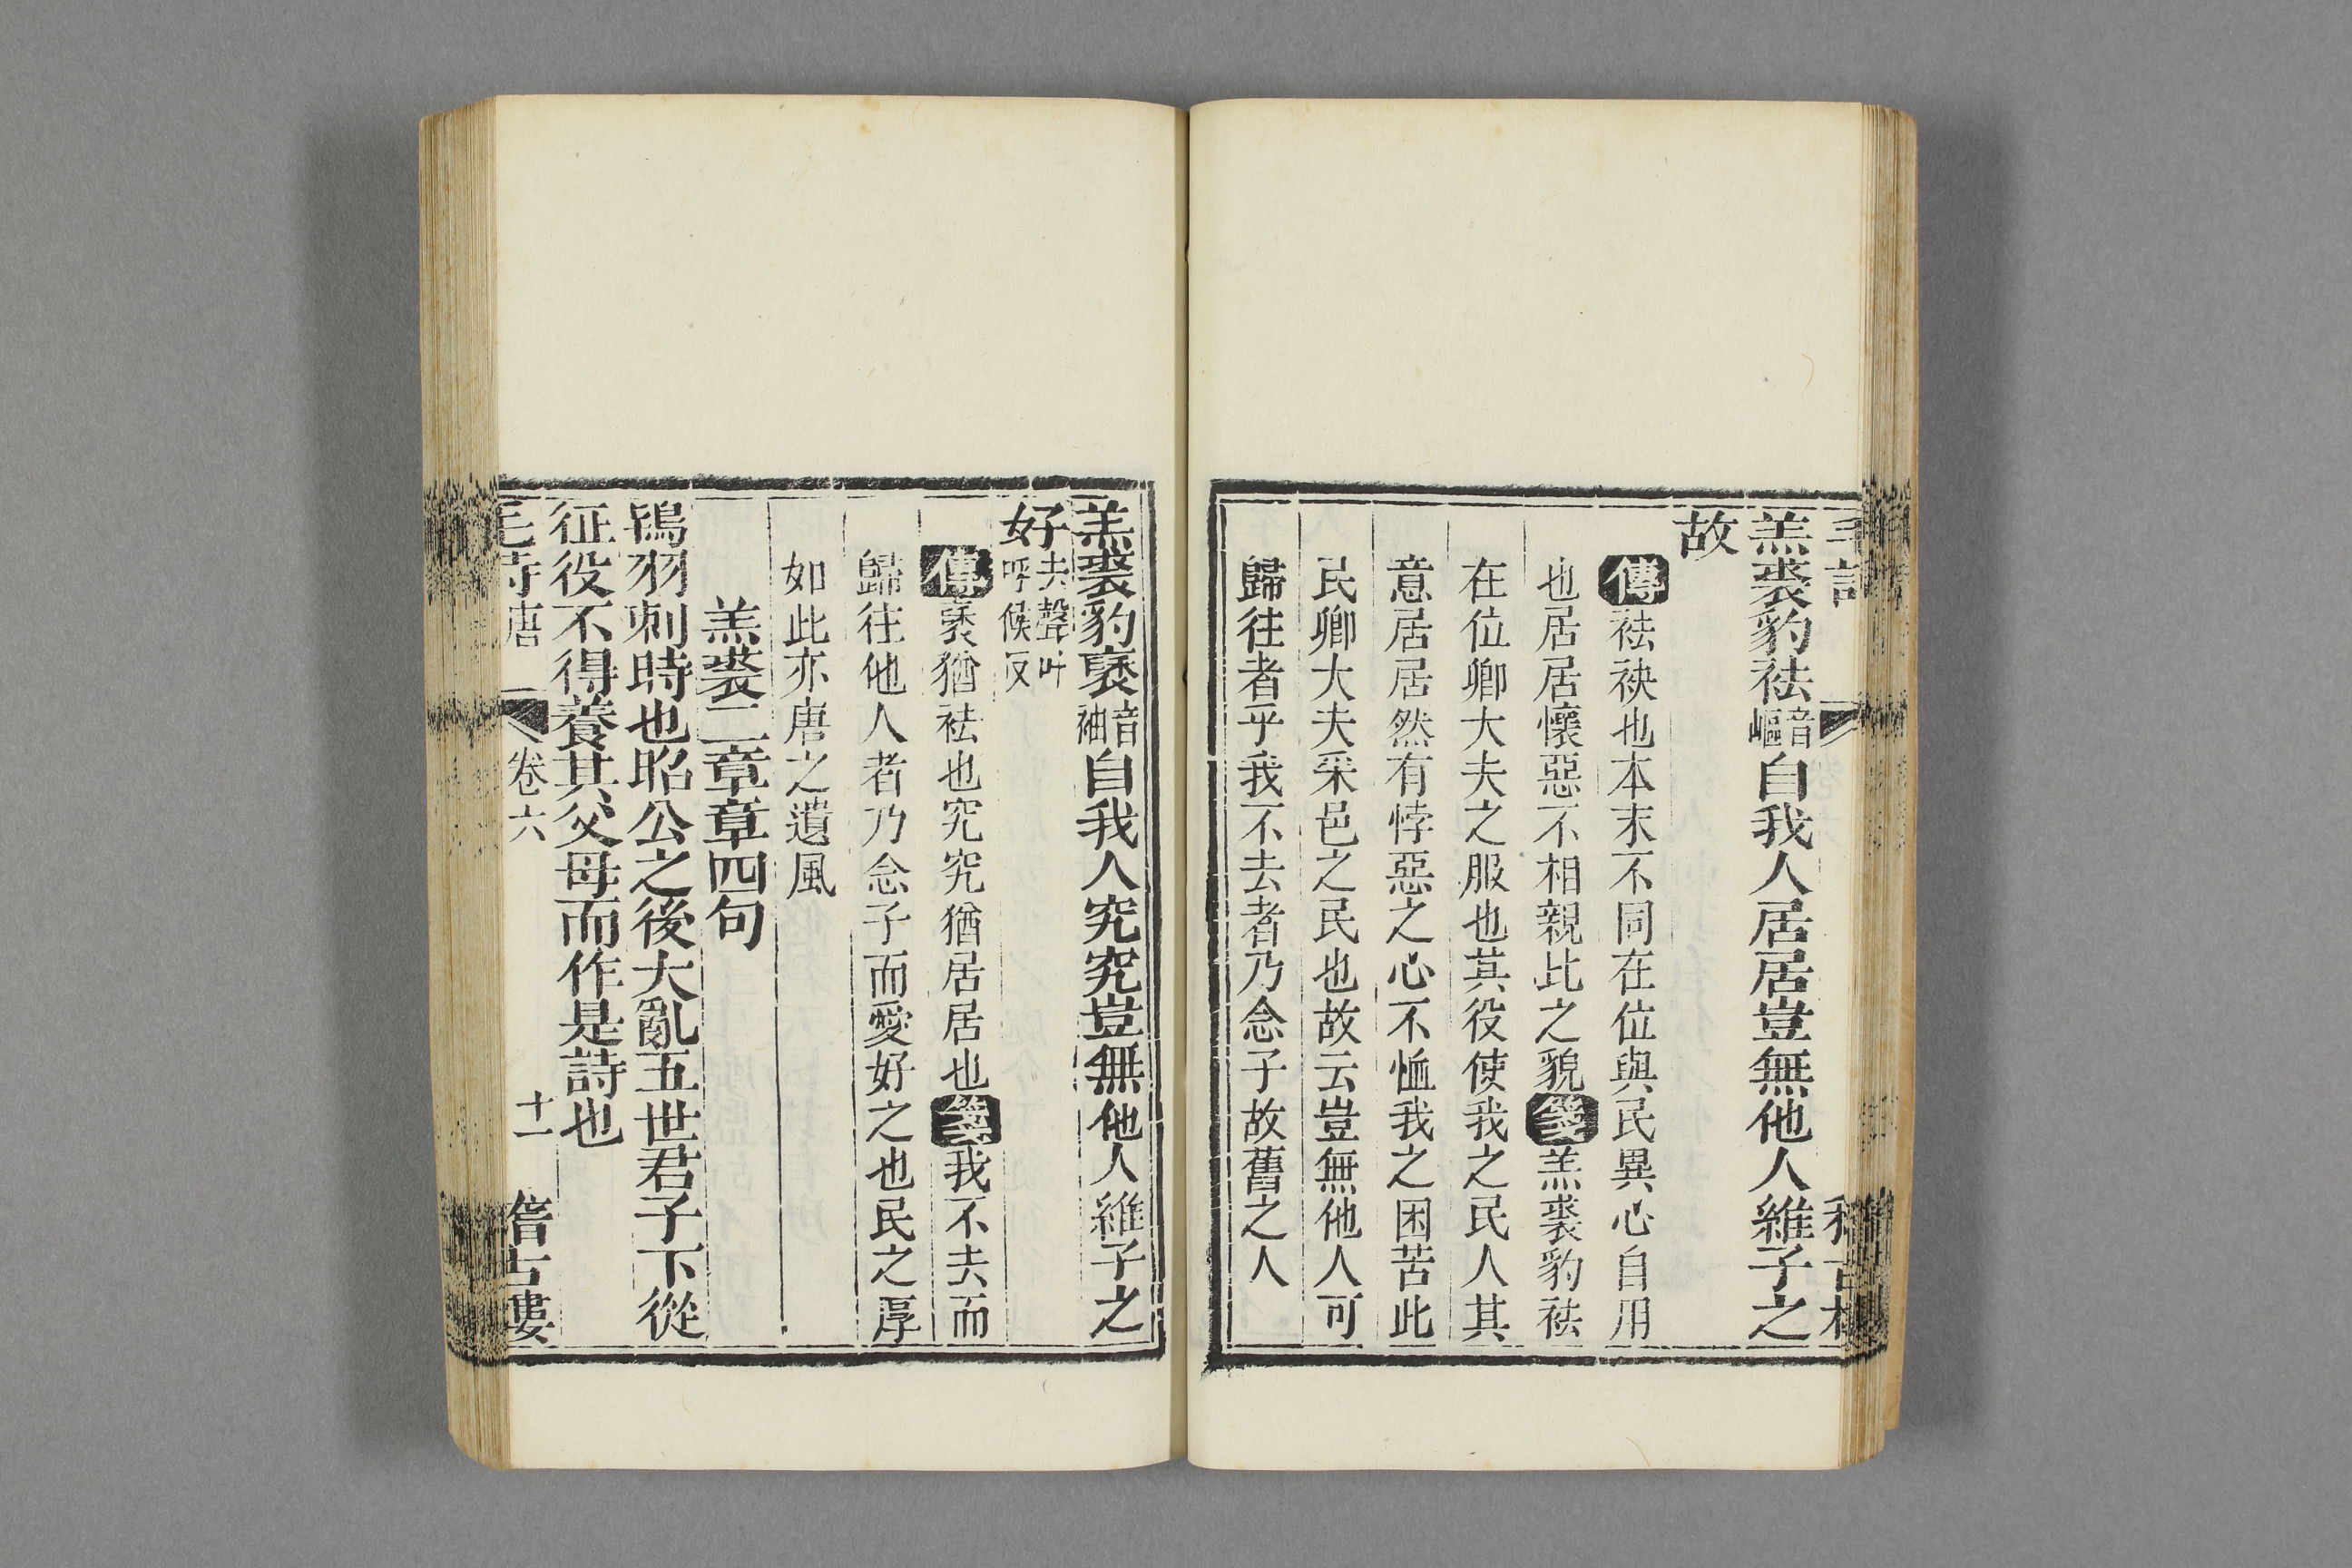 羔裘豹祛音嶇自我人居居豈無他人維子之
故
傳祛袂也本末不同在位與民異心自用
也居居懷惡不相親比之貌箋羔裘豹祛
在位卿大夫之服也其役使我之民人其
意居居然有悖惡之心不恤我之困苦此
民卿大夫采邑之民也故云豈無他人可
歸往者乎我不去者乃念子故舊之人
羔裘豹褎音袖自我人究究豈無他人維子之
好去聲叶呼候反
傳褎猶祛也究究猶居居也箋我不去而
歸往他人者乃念子而愛好之也民之厚
如此亦唐之遺風
羔裘二章章四句
鴇羽刺時也昭公之後大亂五世君子下從
征役不得養其父母而作是詩也
毛詩唐 卷六 十一 稽古樓